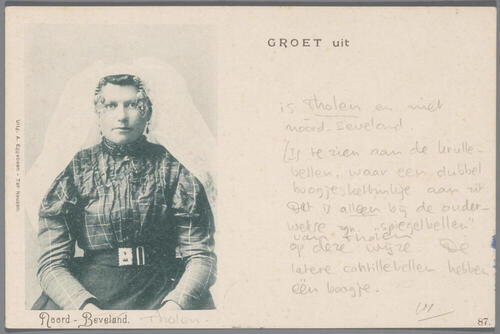 GROET uit
is Tholen en niet
noord-beveland.
Is te zien aan de krulle-
bellen, waar een dubbel
boogjeskettinkje aan zit.
Dit is alleen bij de ouder-
wetse "spiegelbellen"
van Tholen
op deze wijze De
latere cantillebellen hebben
één boogje.
Uitg. A. - Ter Neuzen.
Noord - Beveland. Tholen.
87.